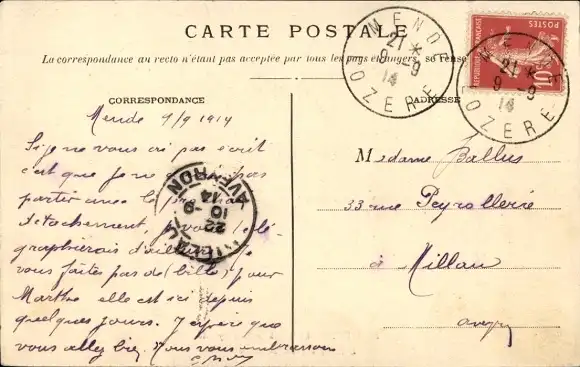 CARTE POSTALE
La correspondance au recto n'étant pas acceptée par tous les pays étrangers, se rense
CORRESPONDANCE
ADRESSE
MENDE
21 *
9 -9
14
LOZERE
MENDE
21 *
9 -9
14
LOZERE
POSTES
REPUBLIQUE FRANÇAISE
10
Mende 9/9 1914
Si je ne vous ai pas écrit
c'est que je ne pas
partir avec le
détachement, je vous télé
graphierais d'ailleurs. Ne
vous faites pas de (bile), pour
Marthe elle est ici depuis
quelques jours. J'espère que
vous allez bien. Nous vous embrassons
AVEYRON
22
10 -9
14
Madame Ballus
33 rue Peyrollerie
à Millau